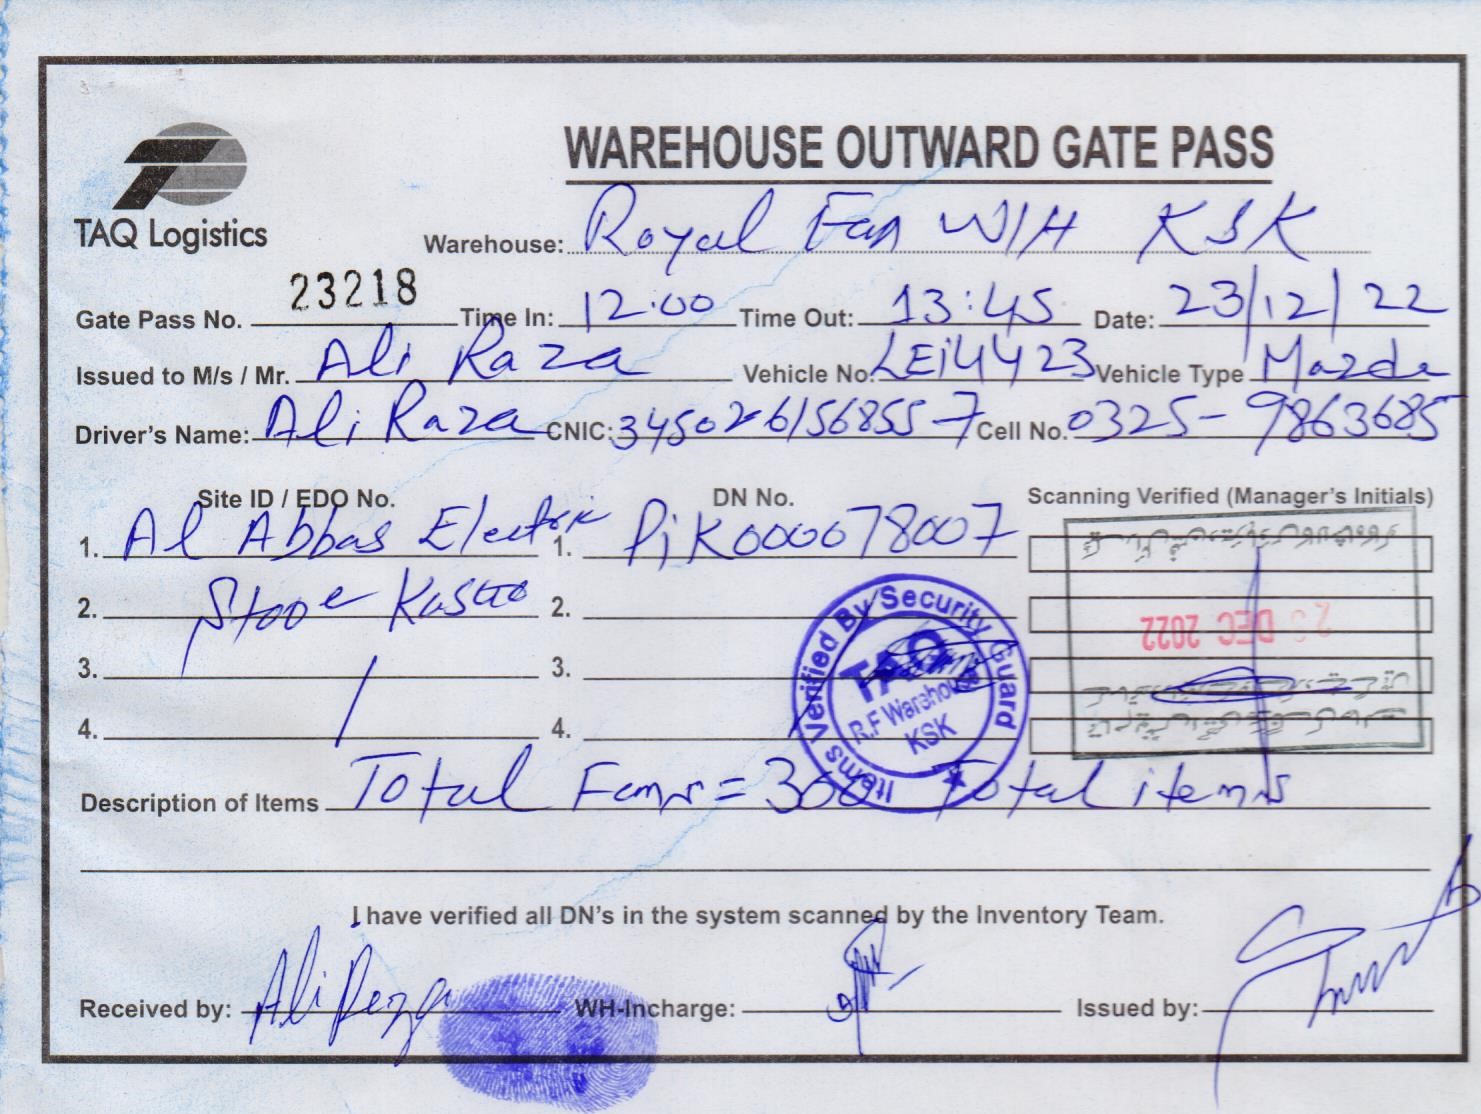 WAREHOUSE OUTWARD GATE PASS
TAQ Logistics
Warehouse: Royal Fan W/H KSK
Gate Pass No. 23218 Time In: 12.00 Time Out: 13:45 Date: 23/12/22
Issued to M/s / Mr. Ali Raza Vehicle No: LEi4423 Vehicle Type Mazda
Driver's Name: Ali Raza CNIC: 345026156855-7 Cell No. 0325-9863685
Site ID / EDO No. DN No. Scanning Verified (Manager's Initials)
1. Al Abbas Electric 1. PiK000078007
2. Stooe 2.
3. 3.
4. 4.
Items Verified By Security Guard
TAQ
R.F Warehouse
KSK
DEC 2022
Description of Items Total Fans = 300 Total items
I have verified all DN's in the system scanned by the Inventory Team.
Received by: Ali Rezga WH-Incharge: Issued by: